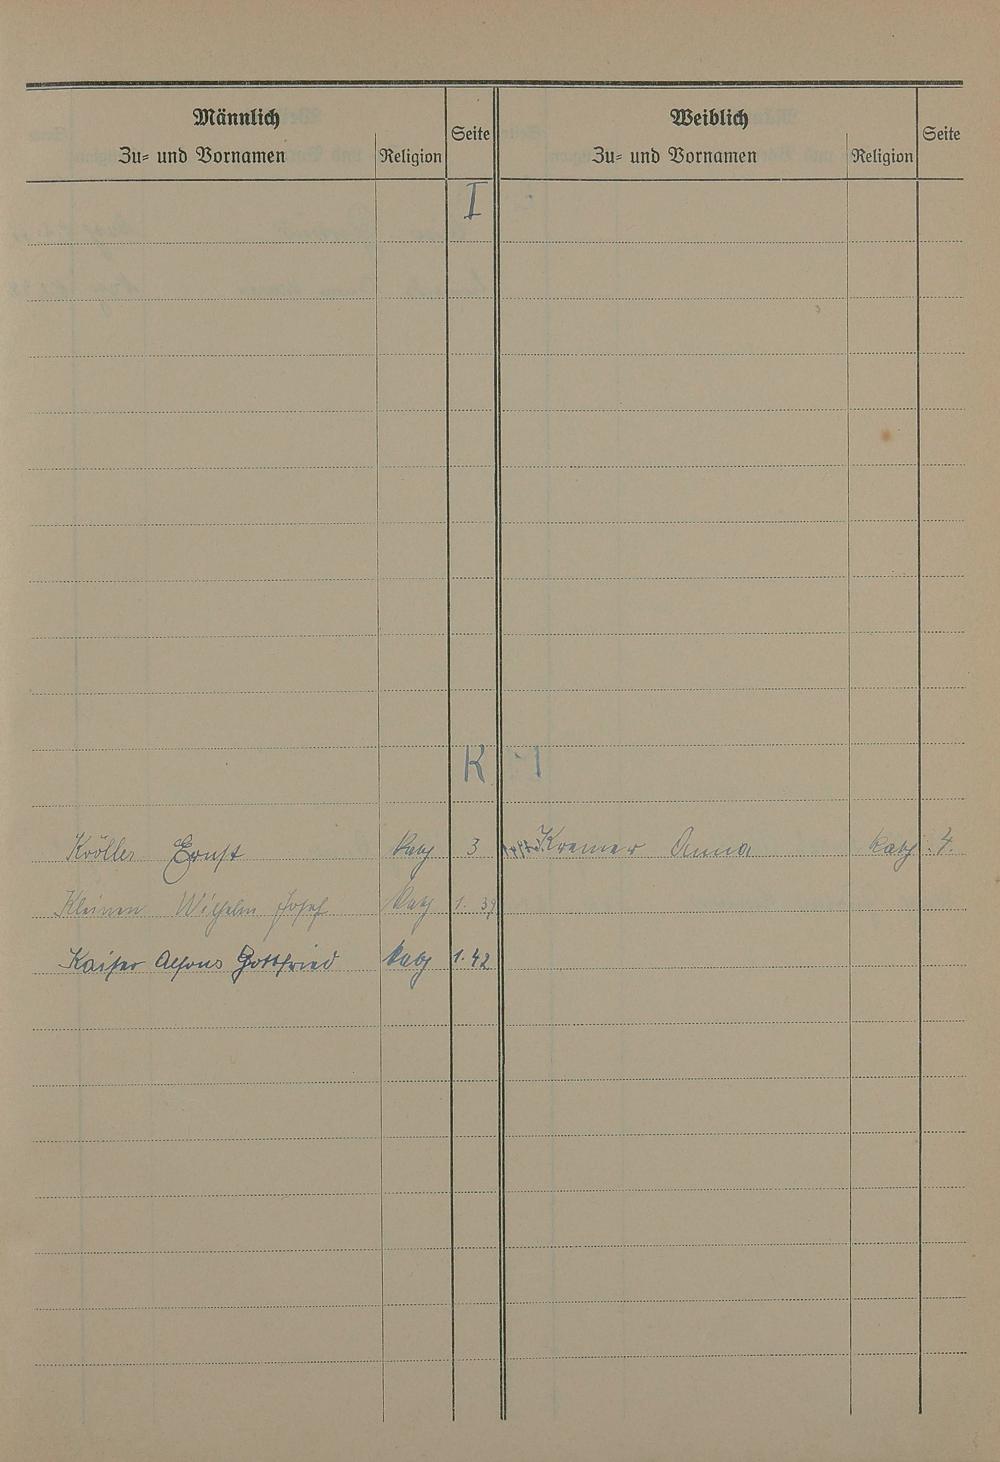 Männlich Weiblich
Seite Seite
Zu- und Vornamen Religion Zu- und Vornamen Religion
I
K
Kröller Ernst kath 3 Kremer Anna kath 4.
Kleinen Wilhelm Josef kath 1. 39
Kaiser Alfons Gottfried kath 1. 42